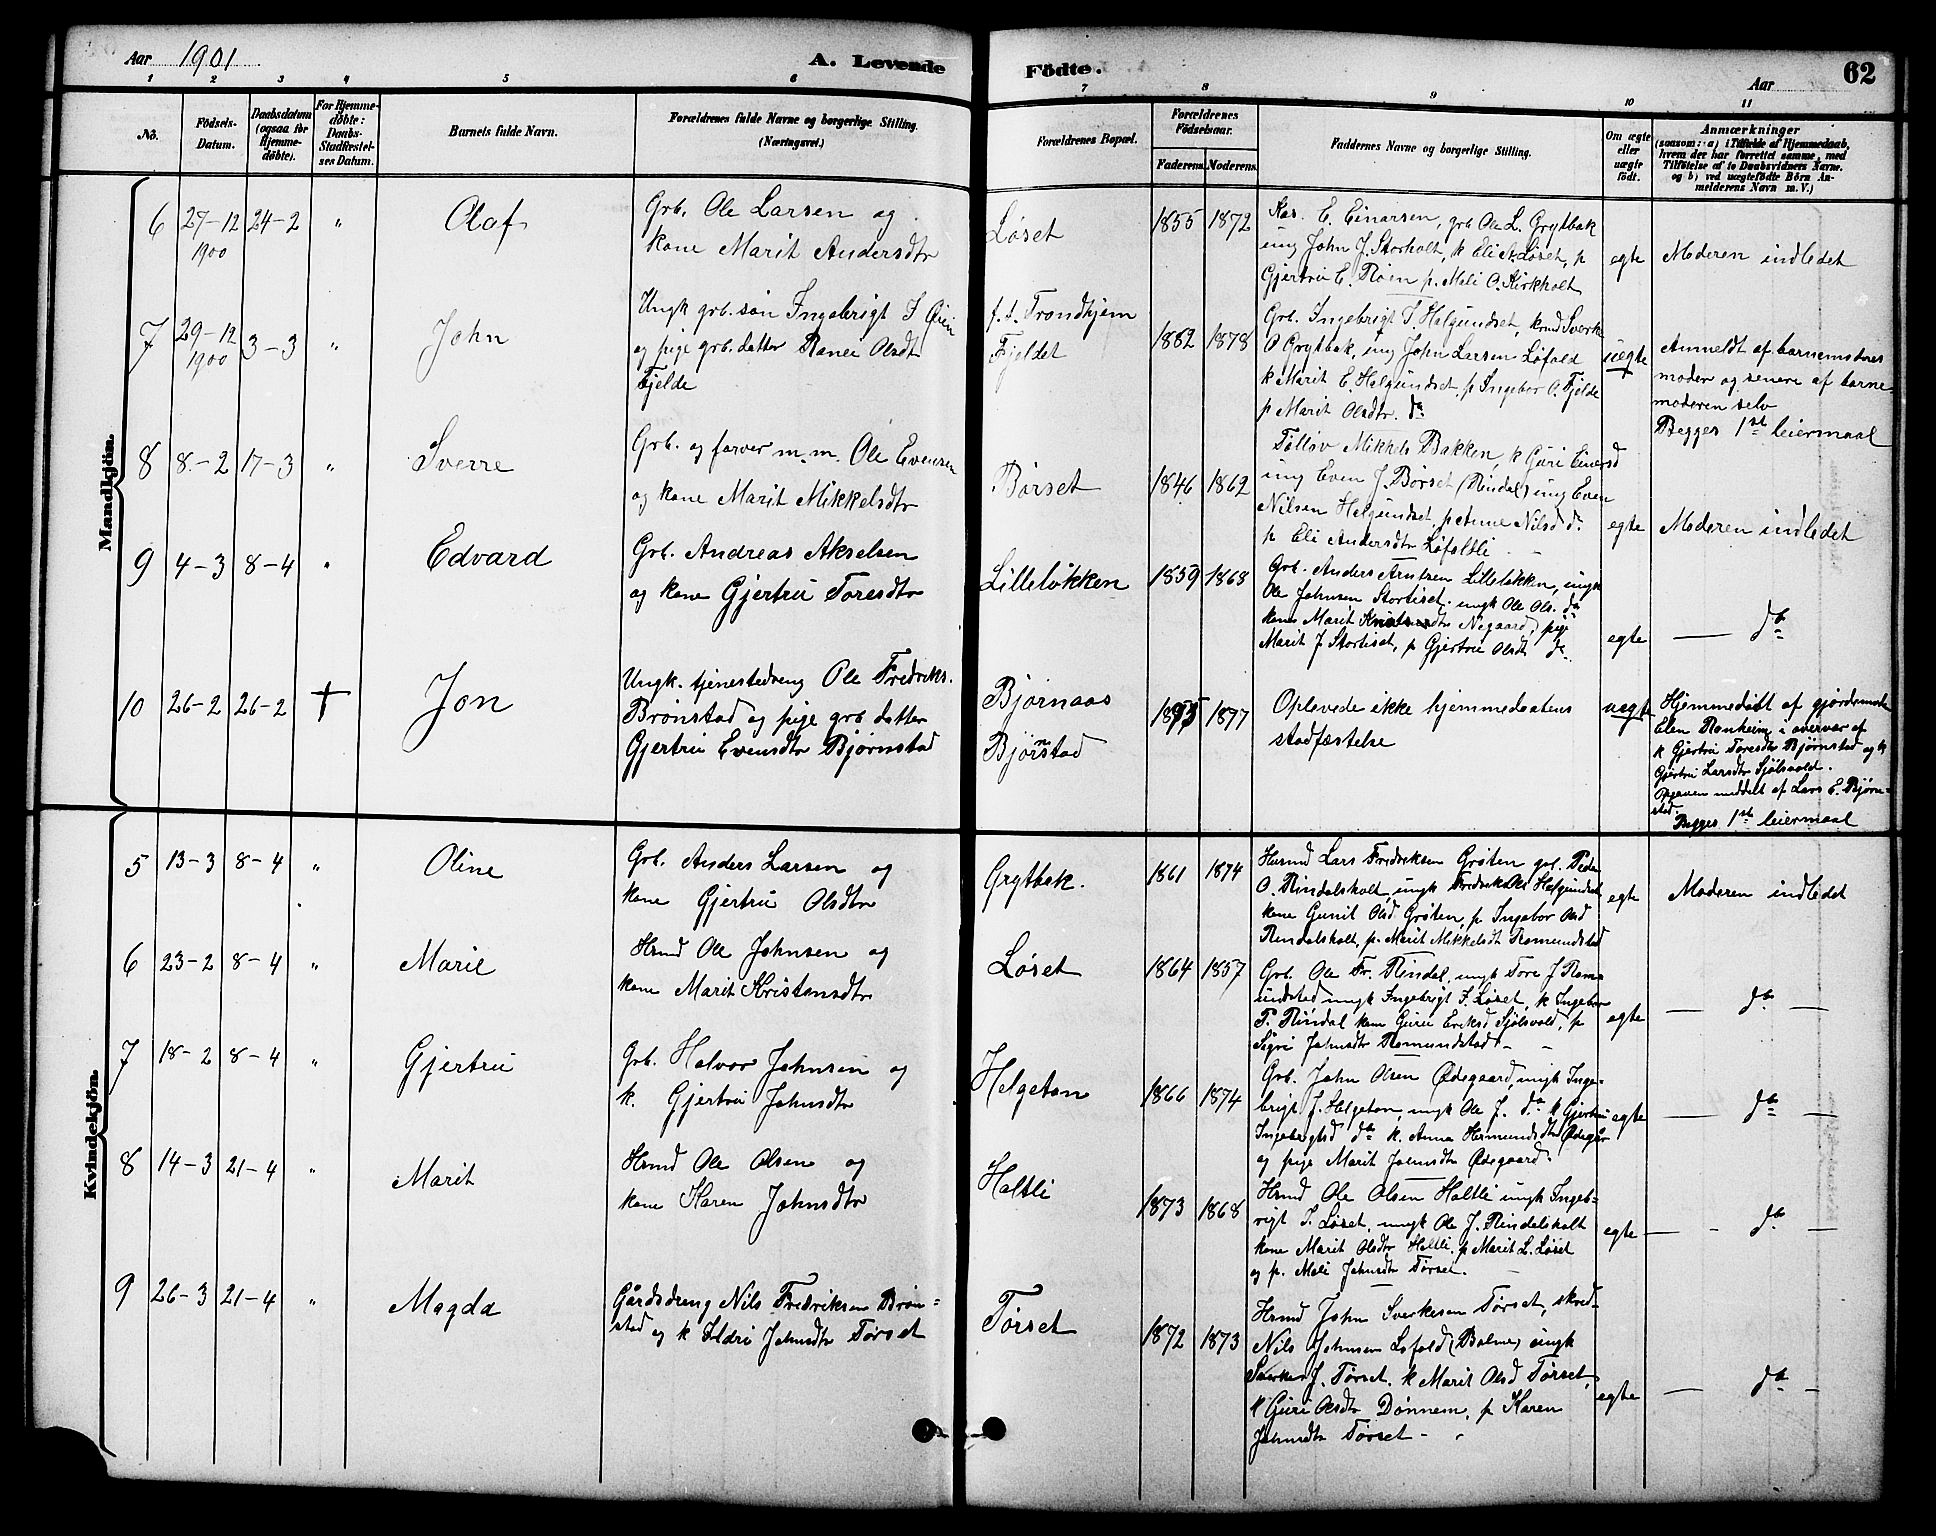 Aar 1901
A. Levende Födte.
Aar
62
1 2 3 4 5 6 7 8 9 10 11
No.
Födsels-Datum.
Daabsdatum (ogsaa for Hjemme-döbte).
For Hjemme-döbte: Daabs-Stadfæstel-ses Datum.
Barnets fulde Navn.
Forældrenes fulde Navne og borgerlige Stilling. (Næringsvei.)
Forældrenes Bopæl.
Forældrenes Födselsaar.
Faderens. Moderens.
Faddernes Navne og borgerlige Stilling.
Om ægte eller uægte födt.
Anmærkninger
(saasom: a) i Tilfælde af Hjemmedaab,
hvem der har forrettet samme, med
Tilföielse af to Daabsvidners Navne.
og b) ved uægtefödte Börn An-
melderens Navn m. V.)
Mandkjön.
6 27-12 1900 24-2 " Olaf
Grb. Ole Larsen og
kone Marit Andersdtr
Løset 1855 1872
Kas. E. Einarsen, grb Ole L. Grytbak
ung John J. Storholt, k Eli A. Løset, p
Gjertru E. Røen p. Mali O. Kirkholt
egte
Moderen indledet
7 29-12 1900 3-3 " John
Ungk grb. søn Ingebrigt I Øien
og pige grb. datter Ranei Olsdt
Fjelde
f.t. Trondhjem
Fjeldet
1882 1878
Grb. Ingebrigt T. Halgundset, krmd Sverke
O Grytbak, ung John Larsen Løfald
k Marit E. Halgundset, p Ingebor O. Fjelde
p Marit Olsdtr. do
uegte
Anmeldt af barnemoders
moder og senere af barne
moderen selv
Begges 1st leiermaal
8 8-2 17-3 " Sverre
Grb. og farver m.m. Ole Evensen
og kone Marit Mikkelsdtr
Børset 1846 1862
Tølløv Mikkels Bakken, k Guri Einarsd
ung Even J. Børset (Rindal) ung Even
Nilsen Halgundset, p Anne Nilsd do
p Eli Andersdtr Løfaldli
egte
Moderen indledet
9 4-3 8-4 " Edvard
Grb. Andreas Akselsen
og kone Gjertru Toresdtr
Lilleløkken 1859 1868
Grb. Anders Arntsen Lilleløkken, ungk
Ole Johnsen Stortiset, ungk Ole Ols. do
kone Marit dtr Negaard, pige
Marit J Stortiset, p Gjertru Olsdt do
egte
— do
10 26-2 26-2 † Jon
Ungk. tjenestedreng Ole Fredriks.
Brønstad og pige grb datter
Gjertru Evensdtr Bjørnstad
Bjørnaas
Bjørnstad
1875 1877
Oplevede ikke hjemmedaabens
stadfæstelse
uegte
Hjemmedøbt af gjordemoder
Elen Ronheim i overvær af
k Gjertru Toresdtr Bjørnstad og k
Gjertru Larsdtr Sjølsvold.
Opgaven meddelt af Lars E. Bjørn-
stad.
Begges 1st leiermaal
Kvindekjön.
5 13-3 8-4 " Oline
Grb. Anders Larsen og
kone Gjertru Olsdtr
Grytbak. 1861 1874
Husmd Lars Fredriksen Grøten grb. Peder
O. Rindalsholt, ungk Fredrik Ols Halgundset
kone Gunil Olsd Grøten, p Ingebor Olsd
Rindalsholt, p. Marit Mikkelsdt Romundstad
egte
Moderen indledet
6 23-2 8-4 " Marie
Hsmd Ole Johnsen og
kone Marit Kristensdtr
Løset 1864 1857
Grb. Ole Fr. Rindal, ungk Tore J Rom-
undstad ungk Ingebrigt I. Løset, k Ingebor
F. Rindal kone Guru Eriksd Sjølsvold, p
Sigri Johnsdtr Romundstad
egte
— do —
7 18-2 8-4 " Gjertru
Grb. Halvor Johnsen og
k. Gjertru Johnsdtr
Helgeton 1866 1874
Grb. John Olsen Ødegaard, ungk Inge-
brigt J. Helgeton, ungk Ole J. do k Gjertru
Ingebrigtsd do k. Anna Hermundsdtr Ødegår
og pige Marit Johnsdtr Ødegaard.
egte
— do —
8 14-3 21-4 " Marit
Hsmd Ole Olsen og
kone Karen Johnsdtr
Haltli 1873 1868
Hsmd Ole Olsen Haltli ungk Ingeb-
rigt I. Løset, ungk Ole J. Rindalsholt
kone Marit Olsdtr Haltli, p Marit L. Løset
og p. Mali Johnsdtr Tørset.
egte
— do —
9 26-3 21-4 " Magda
Gårdsdreng Nils Fredriksen Brøn-
stad og k Ildri Johnsdtr Tørset
Tørset 1872 1873
Hsmd John Sverkesen Tørset, skred-
Nils Johnsen Løfald (Bolme) ungk
Sverke J. Tørset, k Marit Olsd Tørset,
k Guri Olsdtr Dønnem, p Karen
Johnsdtr Tørset
egte
— do —